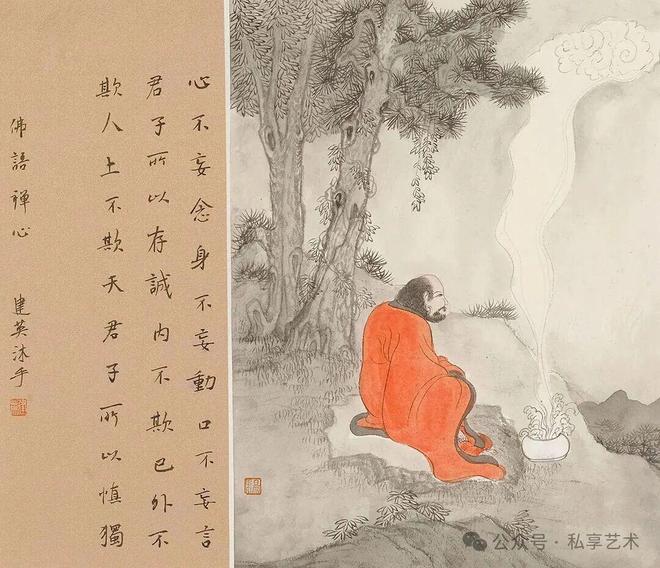 心不妄念身不妄動口不妄言
君子所以存誠内不欺己外不
欺人上不欺天君子所以慎獨
佛語禪心
建英沐手
公众号·私享艺术